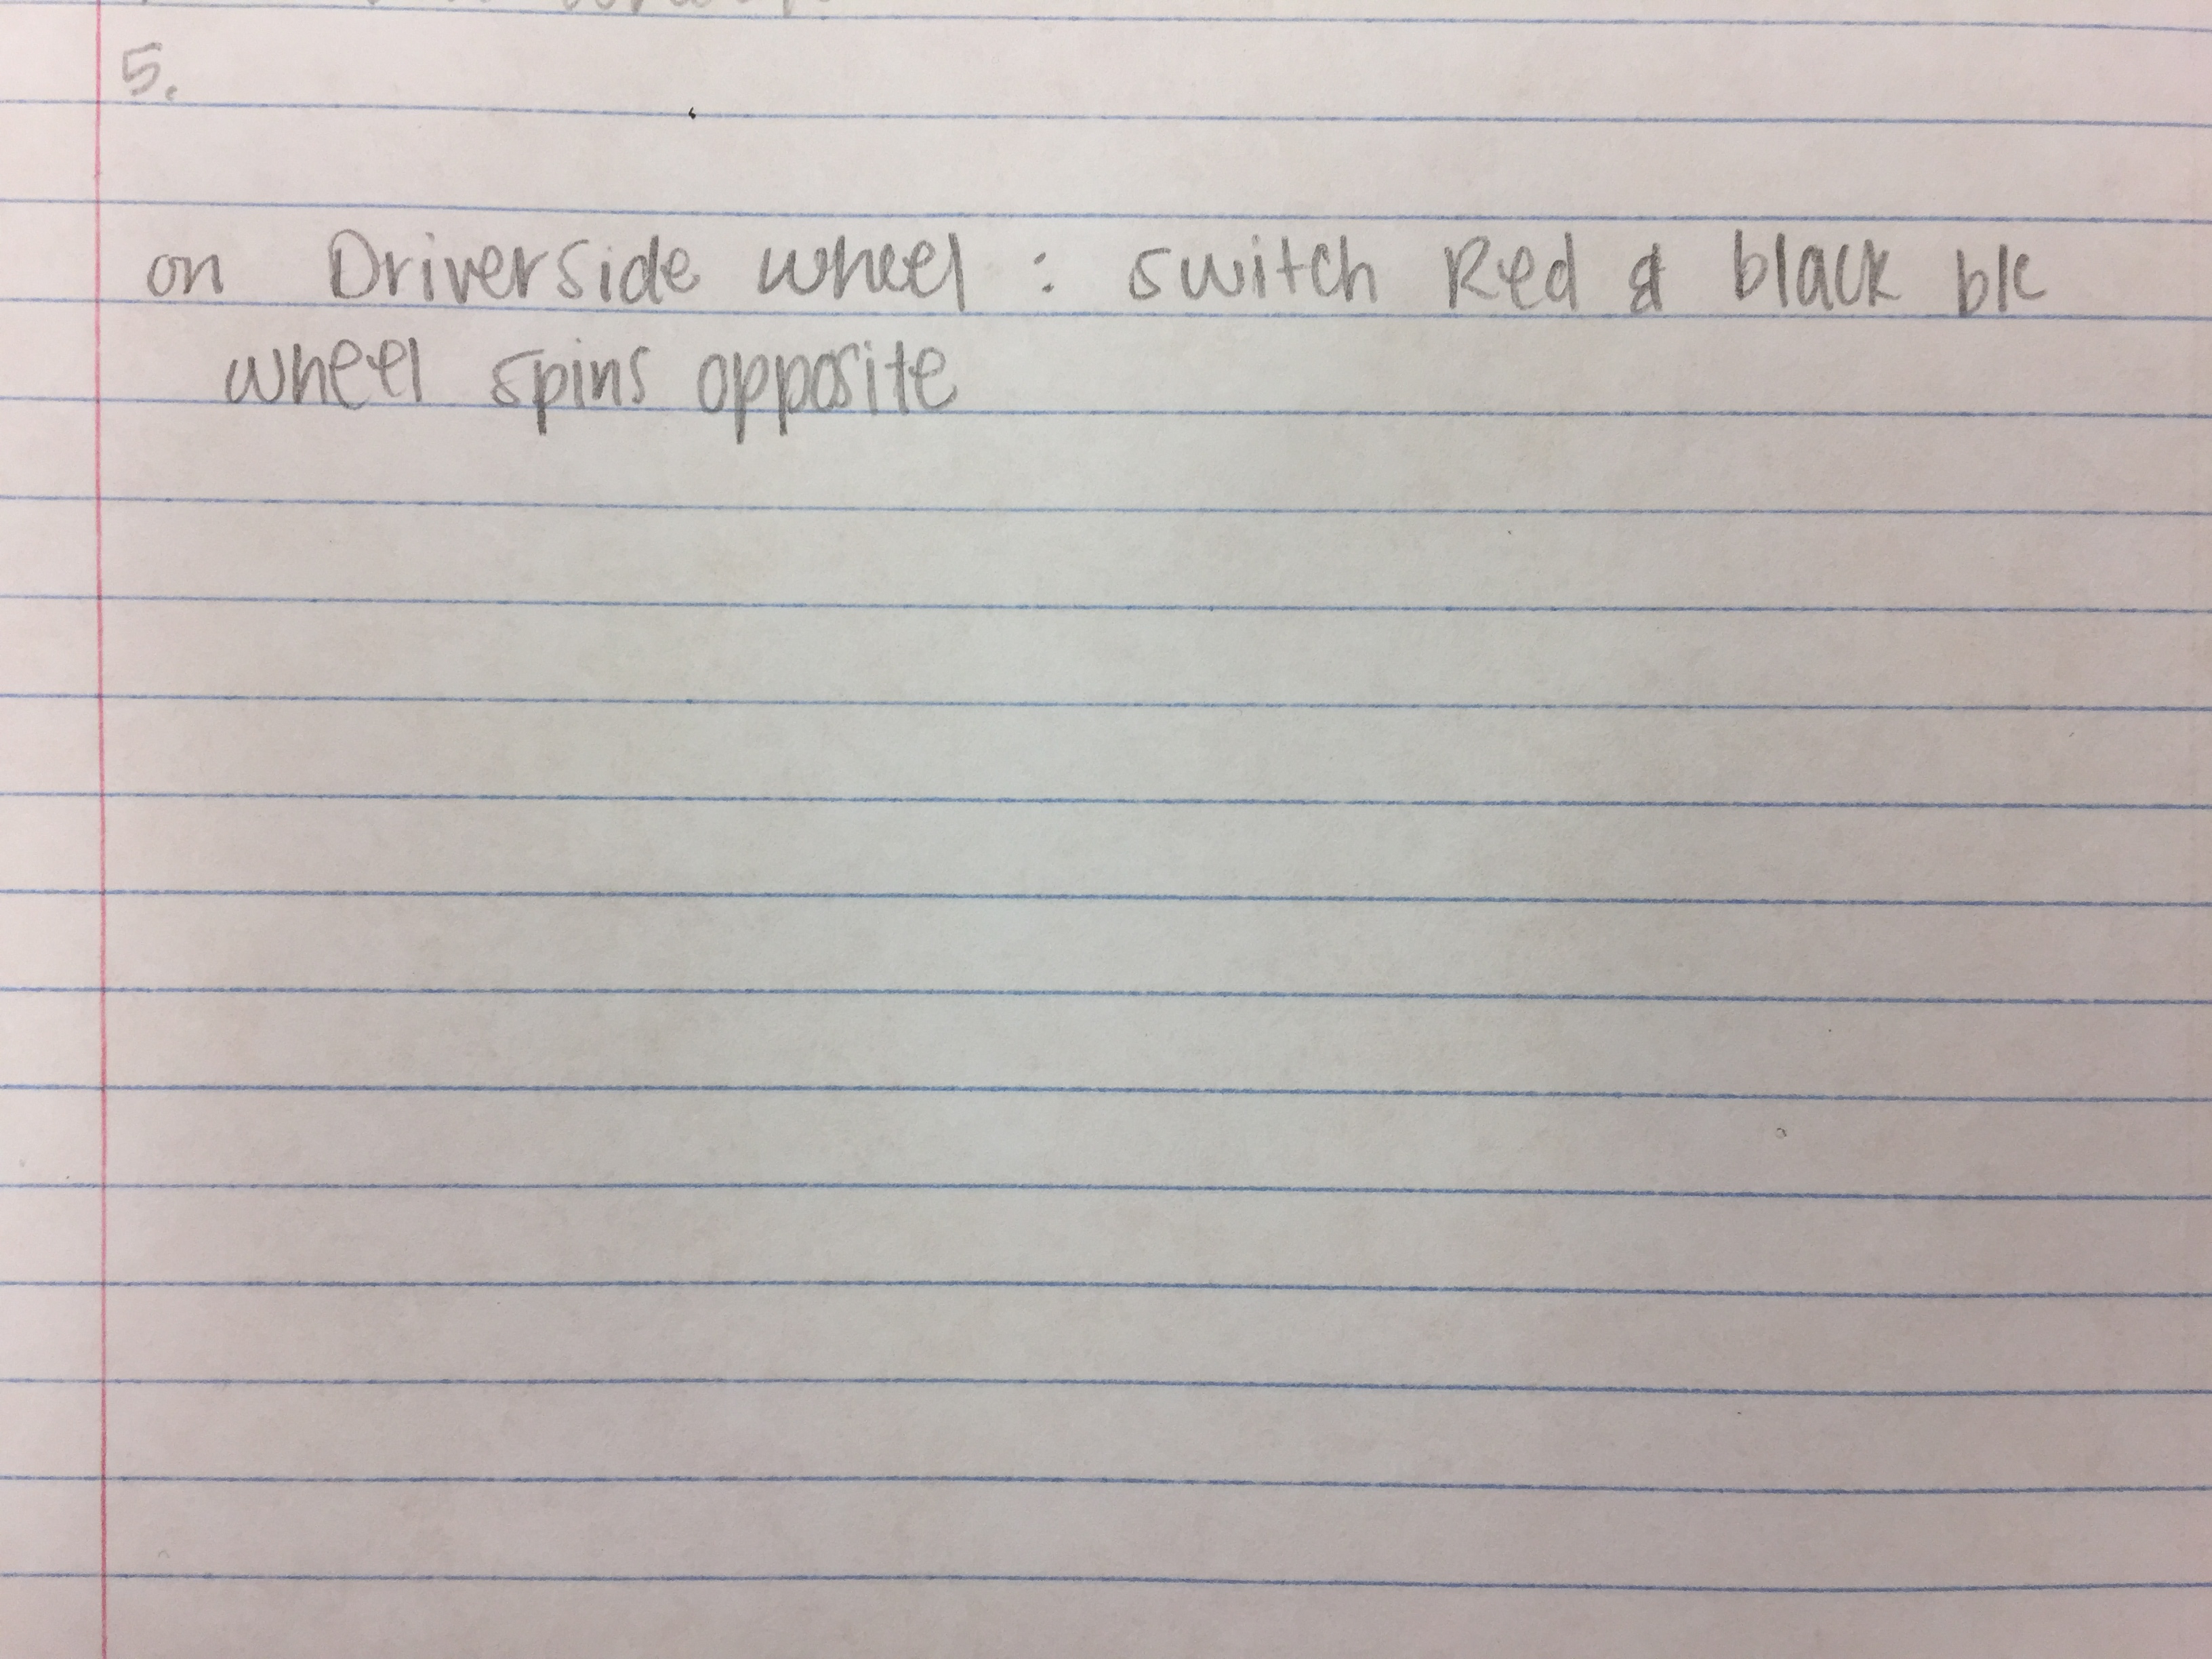 5.
on Driverside wheel : switch Red & black b/c
wheel spins opposite